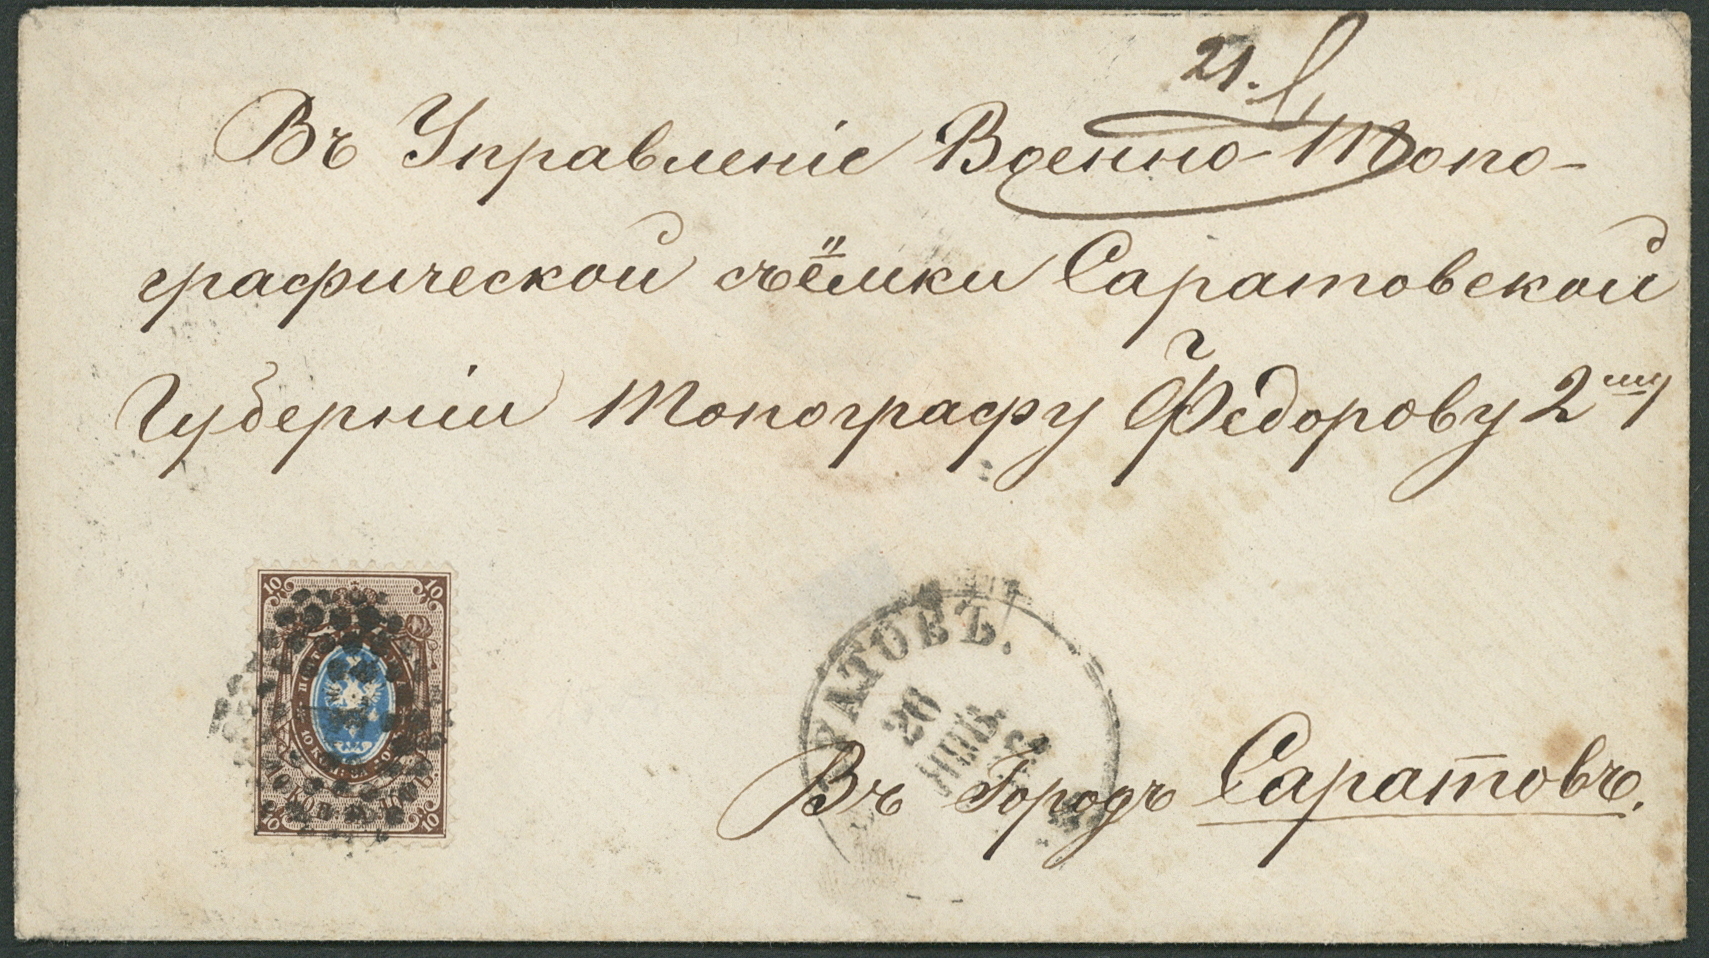 21.
Въ Управленіе Военно-Топо-
графической съёмки Саратовской
Губерніи Топографу Федорову 2му
10 10
САРАТОВЪ.
26
ЯНВ.
Въ Городъ Саратовъ.
10 10